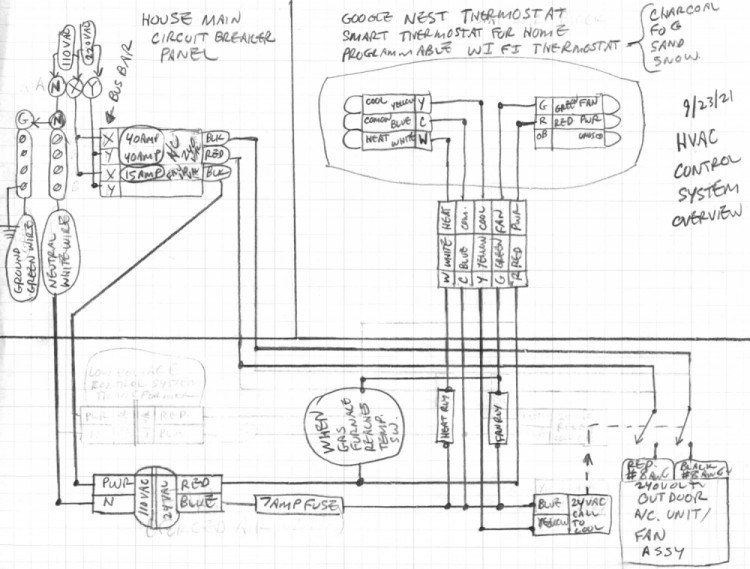 HOUSE MAIN
CIRCUIT BREAKER
PANEL
110VAC
220VAC
N X Y
BUS BAR
G N
X 40AMP A/C BLK
Y 40AMP RED
X 15AMP BLK
Y
GROUND
GREEN WIRE
NEUTRAL
WHITE WIRE
GOOGLE NEST THERMOSTAT
SMART THERMOSTAT FOR HOME
PROGRAMMABLE WI FI THERMOSTAT
CHARCOAL
FOG
SAND
SNOW
COOL YELLOW Y
COMON BLUE C
HEAT WHITE W
G GREEN FAN
R RED PWR
OB UNUSED
9/23/21
HVAC
CONTROL
SYSTEM
OVERVIEW
W WHITE HEAT
C BLUE COM.
Y YELLOW COOL
G GREEN FAN
R RED PWR
LOW VOLTAGE
CONTROL SYSTEM
PWR RED
WHEN
GAS
FURNACE
REACHES
TEMP.
SW.
HEAT RLY
FAN RLY
PWR 110VAC 24VAC RED
N BLUE
7 AMP FUSE
BLUE 24VAC
CALL
YELLOW TO
COOL
RED
#8AWG
BLACK
#8AWG
240VOLT
OUTDOOR
A/C. UNIT/
FAN
ASSY